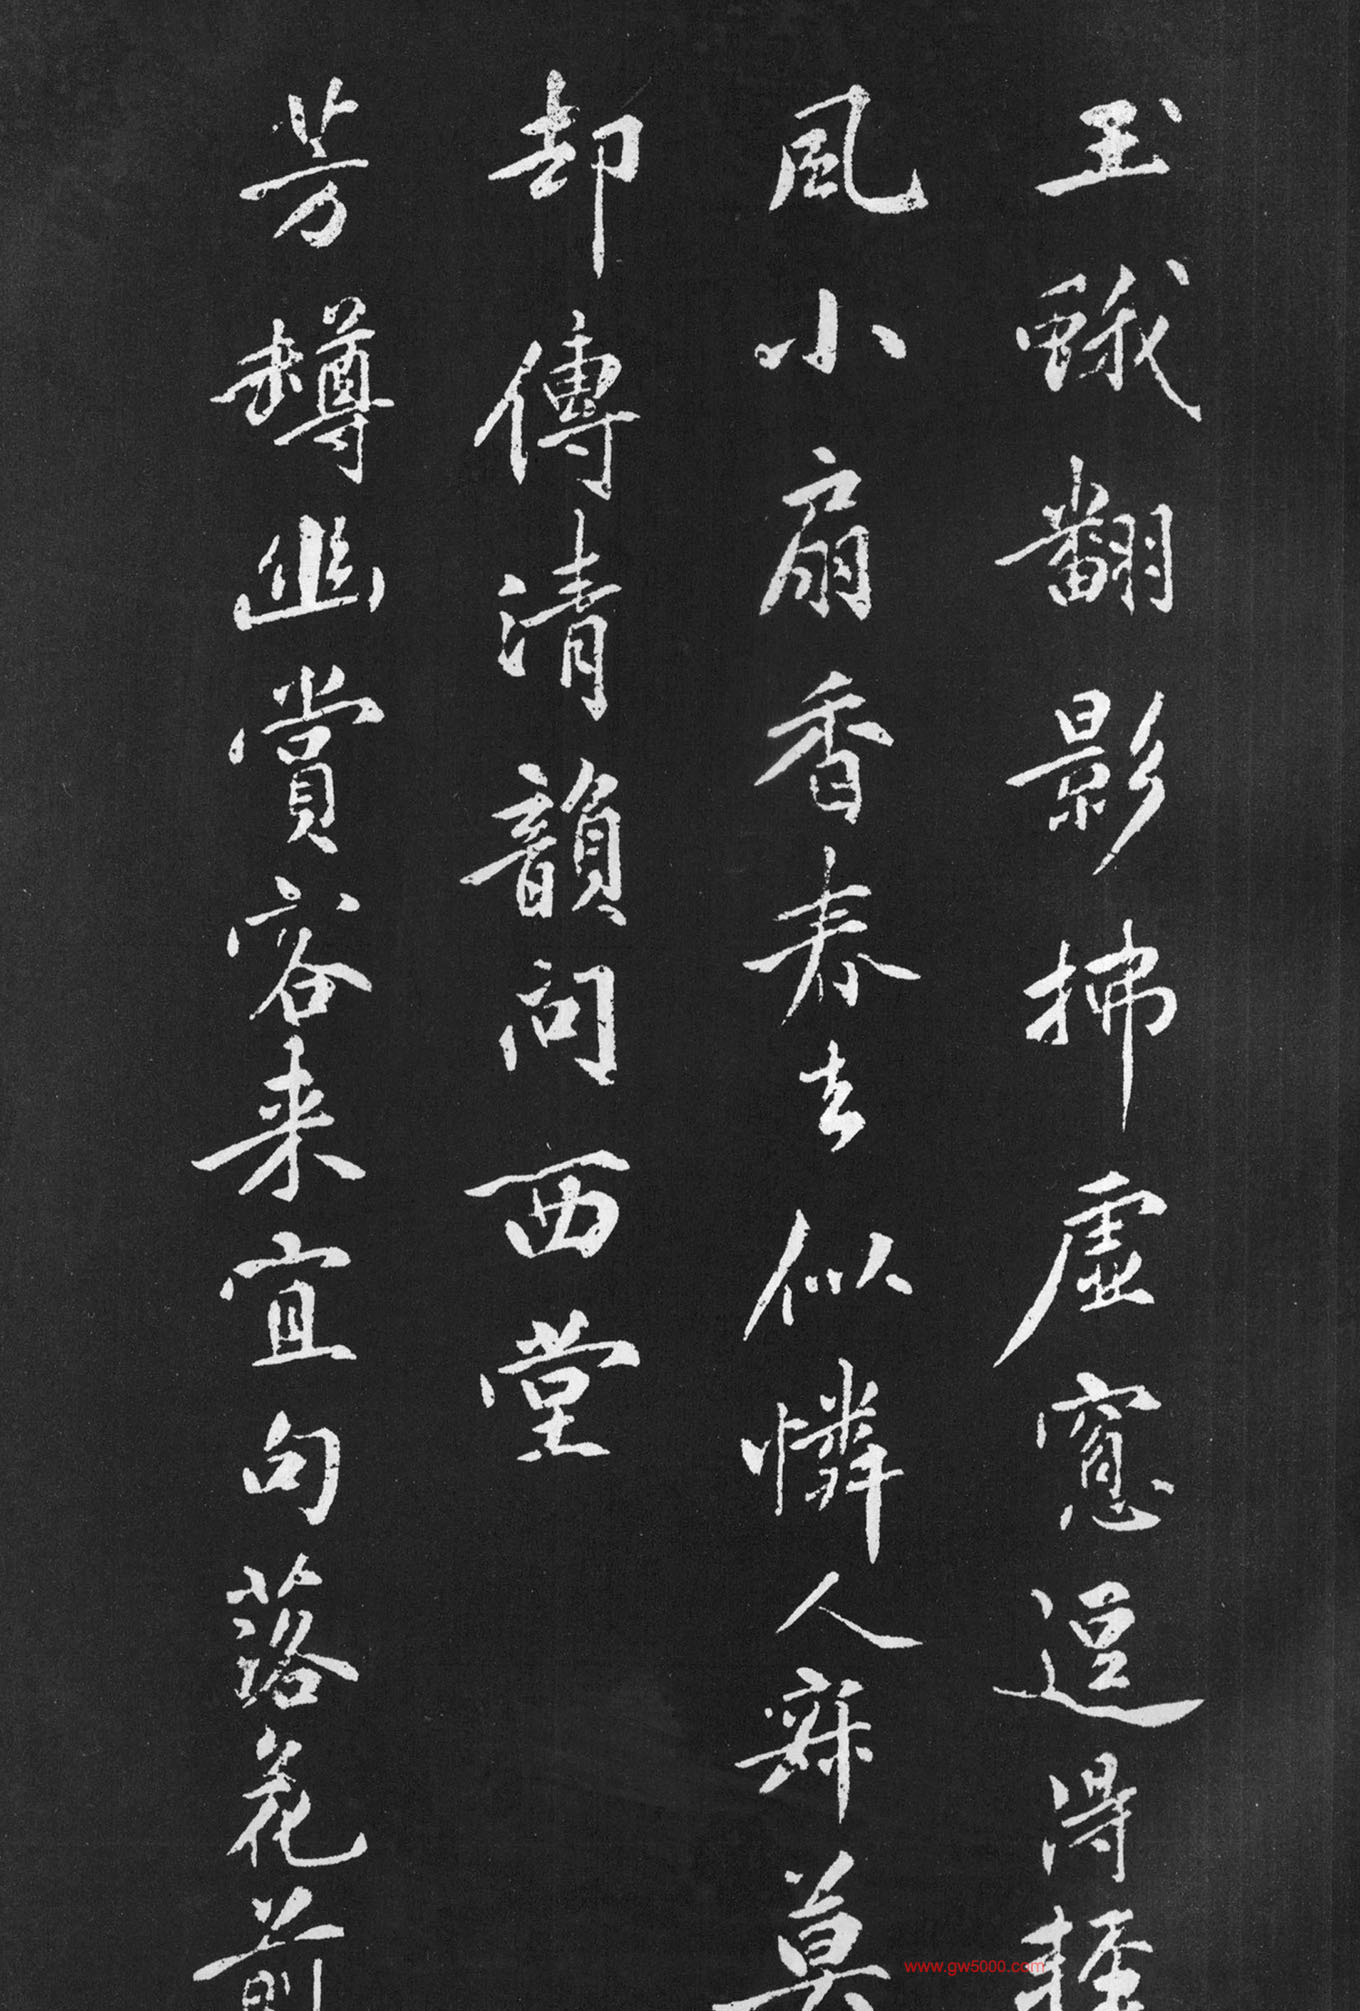 玉蛾翻影拂虛窻逗得輕
風小扇香春去似憐人寐莫
却傳清韻問西堂
芳罇幽賞客来宜句落花前
www.gw5000.com